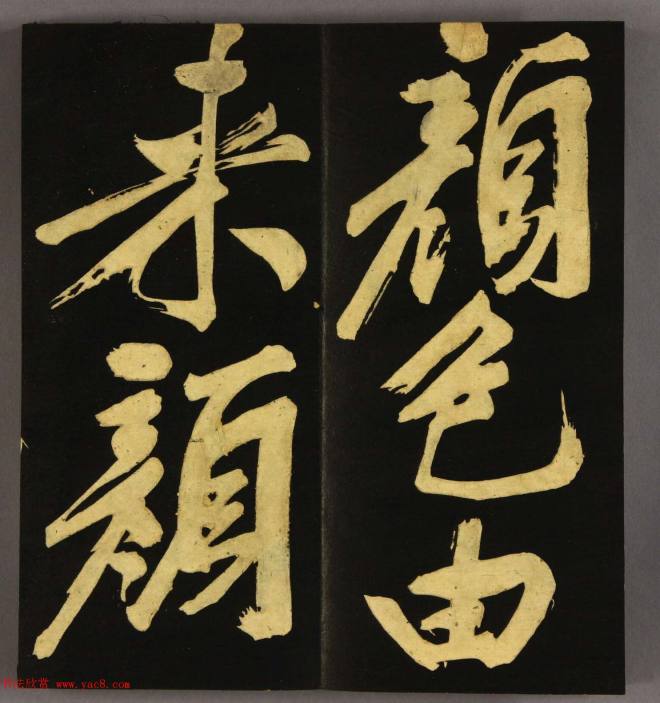 顔色由
来顔
书法欣赏 www.yac8.com